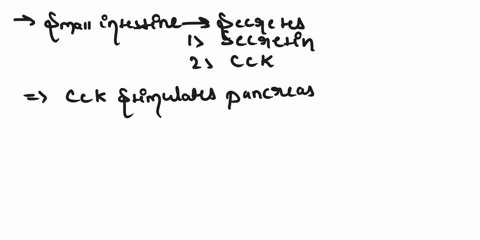 → Small intestine → Secretes
1) Secretin
2) CCK
=> CCK Stimulates pancreas